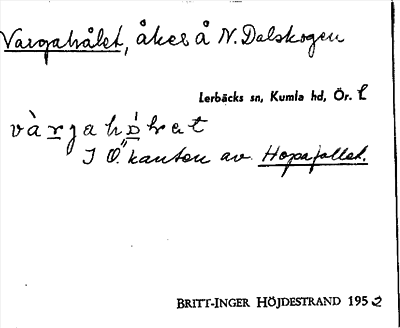 Vargahålet, åker å N. Dalskogen
Lerbäcks sn, Kumla hd, Ör. l.
I Ö. kanten av Hopafallet.
BRITT-INGER HÖJDESTRAND 1952